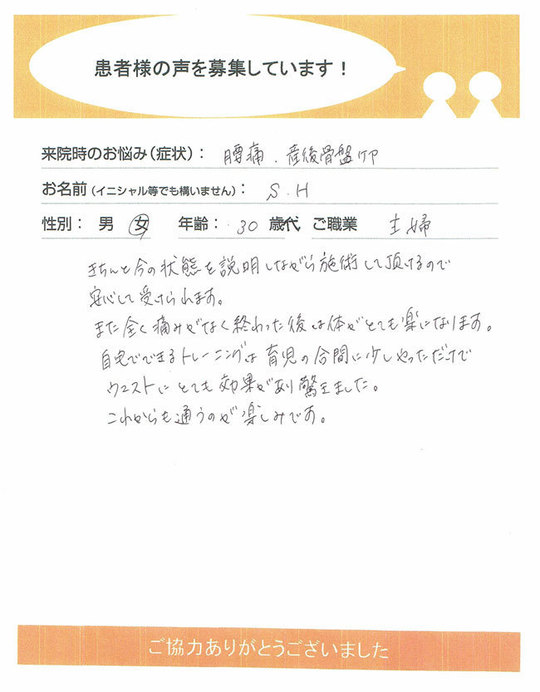 患者様の声を募集しています！
来院時のお悩み（症状）： 腰痛．産後骨盤ケア
お名前（イニシャル等でも構いません）： S.H
性別： 男 女 年齢： 30 歳代 ご職業 主婦
きちんと今の状態を説明しながら施術して頂けるので
安心して受けられます。
また全く痛みがなく終わった後は体がとても楽になります。
自宅でできるトレーニングは育児の合間に少しやっただけで
ウエストにとても効果があり驚きました。
これからも通うのが楽しみです。
ご協力ありがとうございました